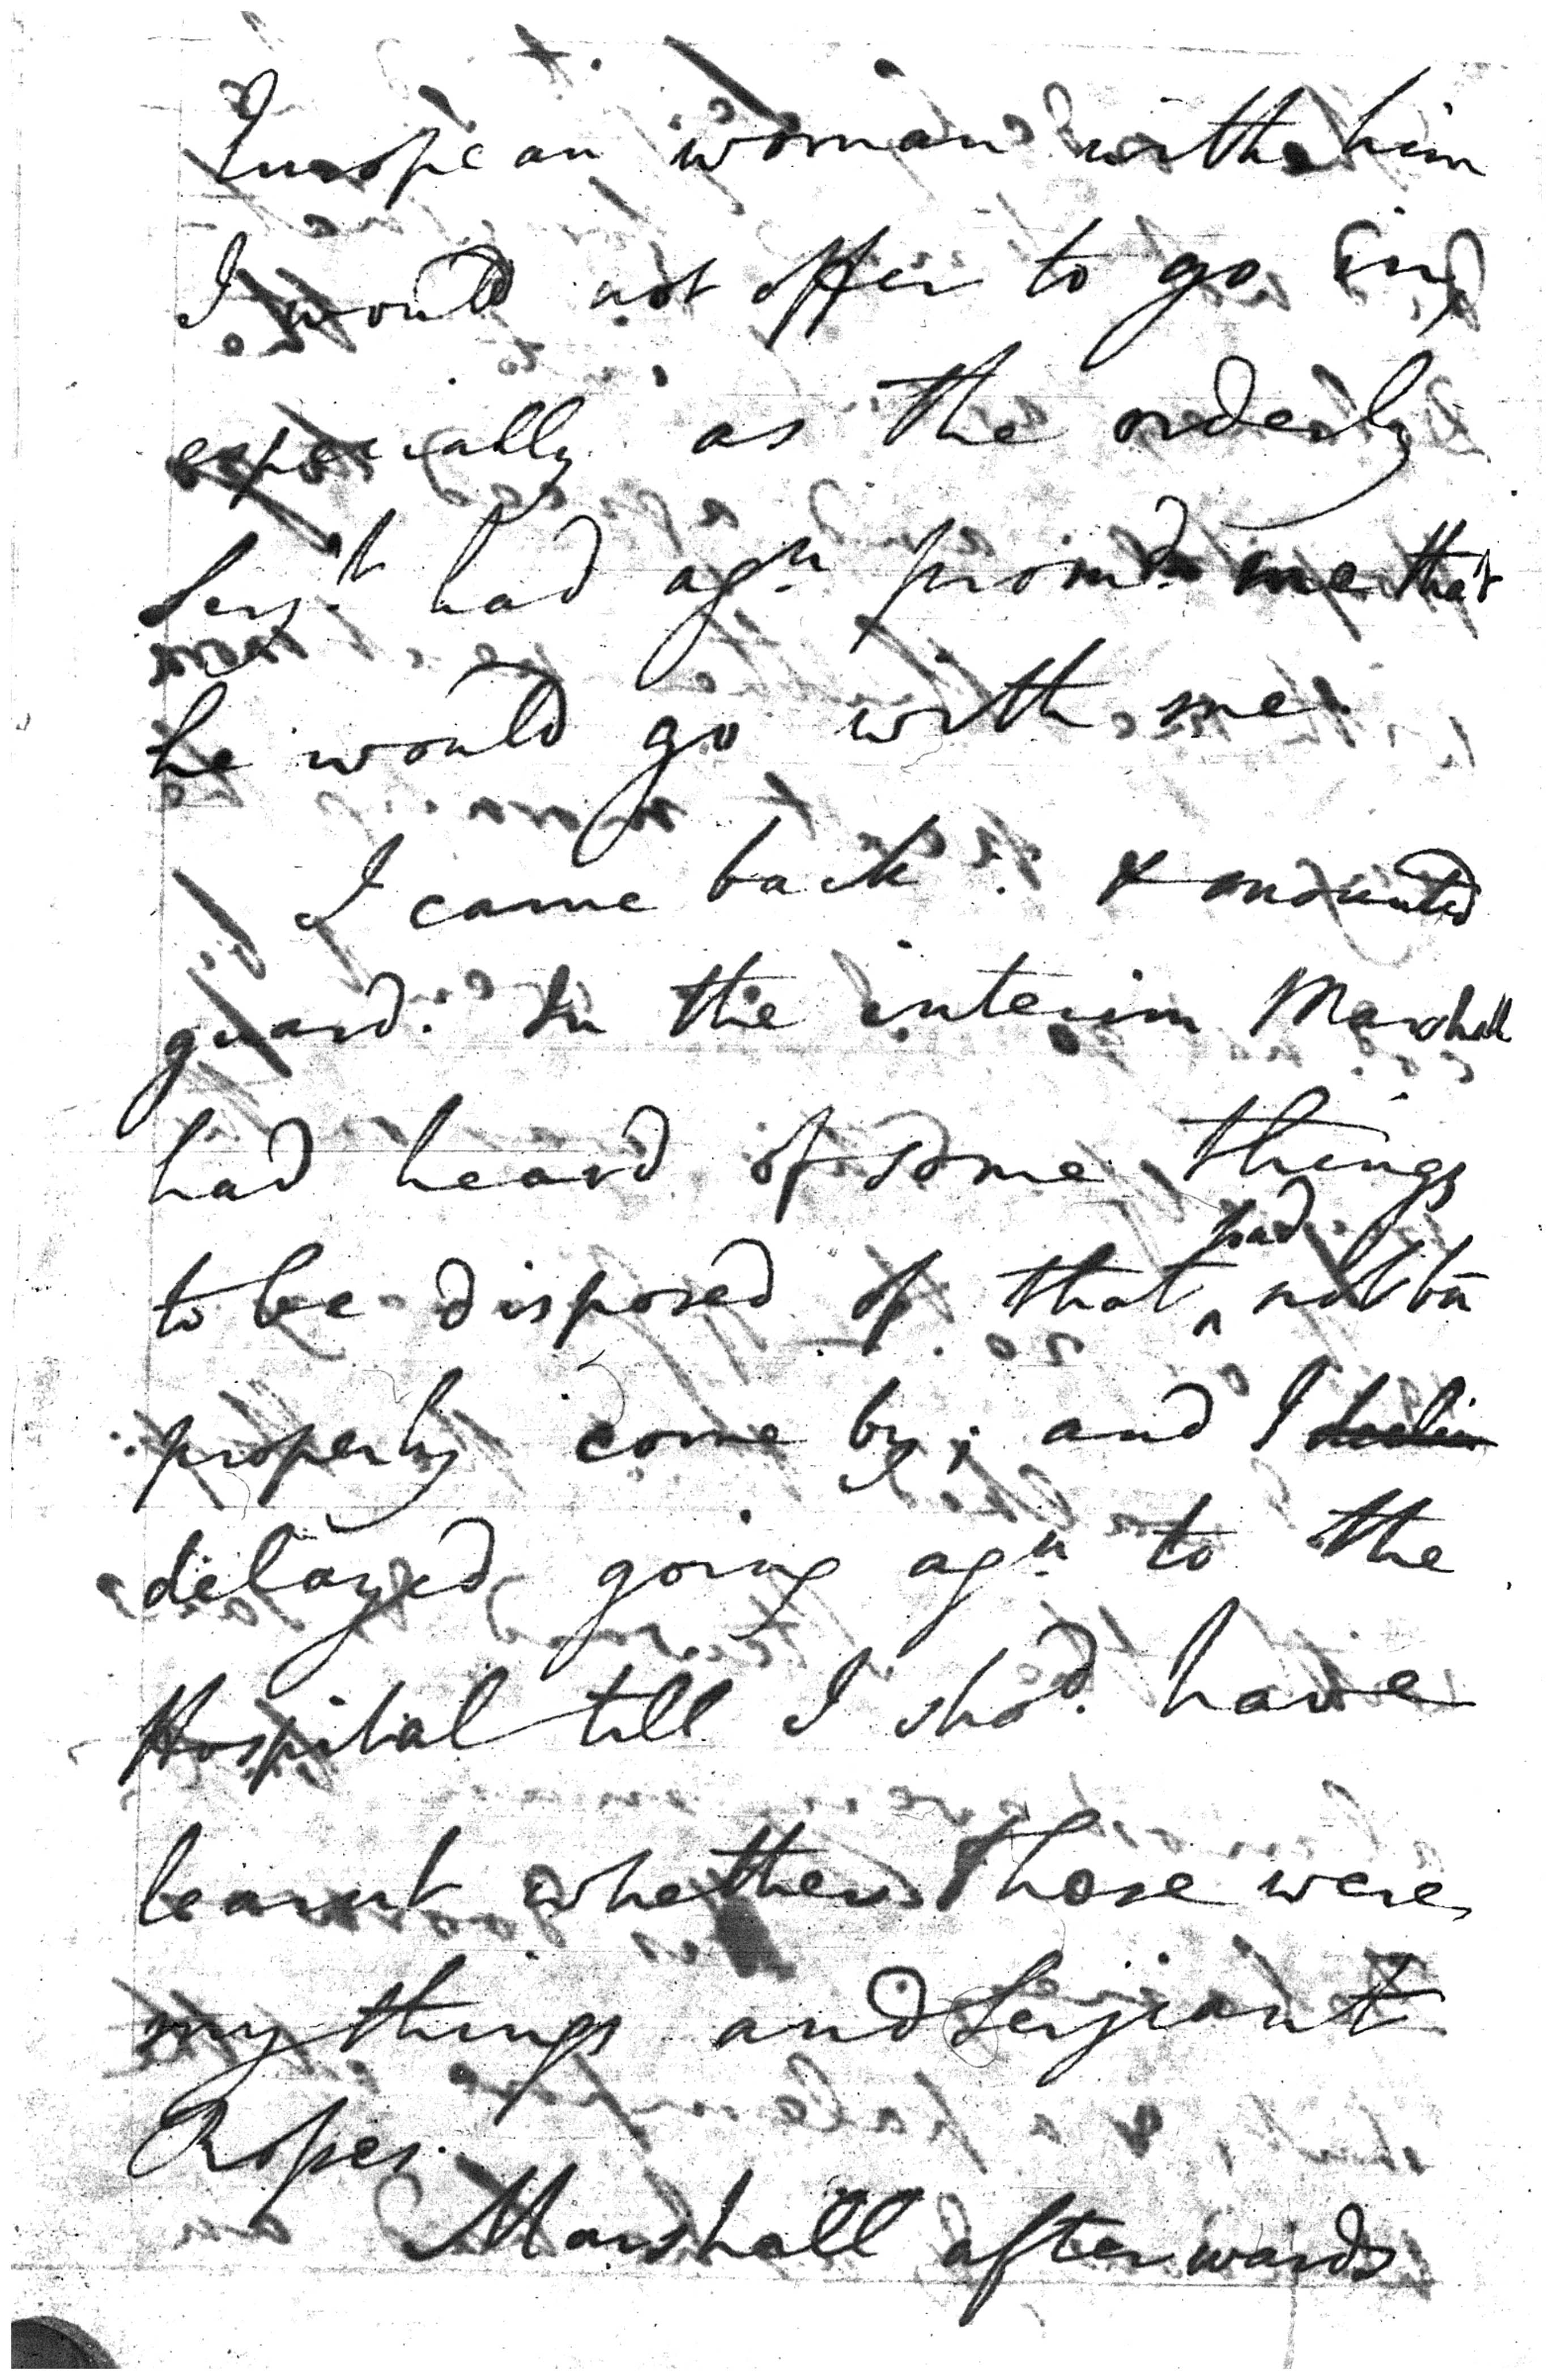 European woman with him
I would not offer to go in,
especially as the orderly
Serjt. had agn. promd. me that
he would go with me.
I came back & mounted
guard. In the interim Marshall
had heard of some things
to be disposed of that had not bn
properly come by; and I
delayed going agn. to the
Hospital till I shod. have
learnt whether those were
my things and Serjeant
Ropes.
Marshall afterwards